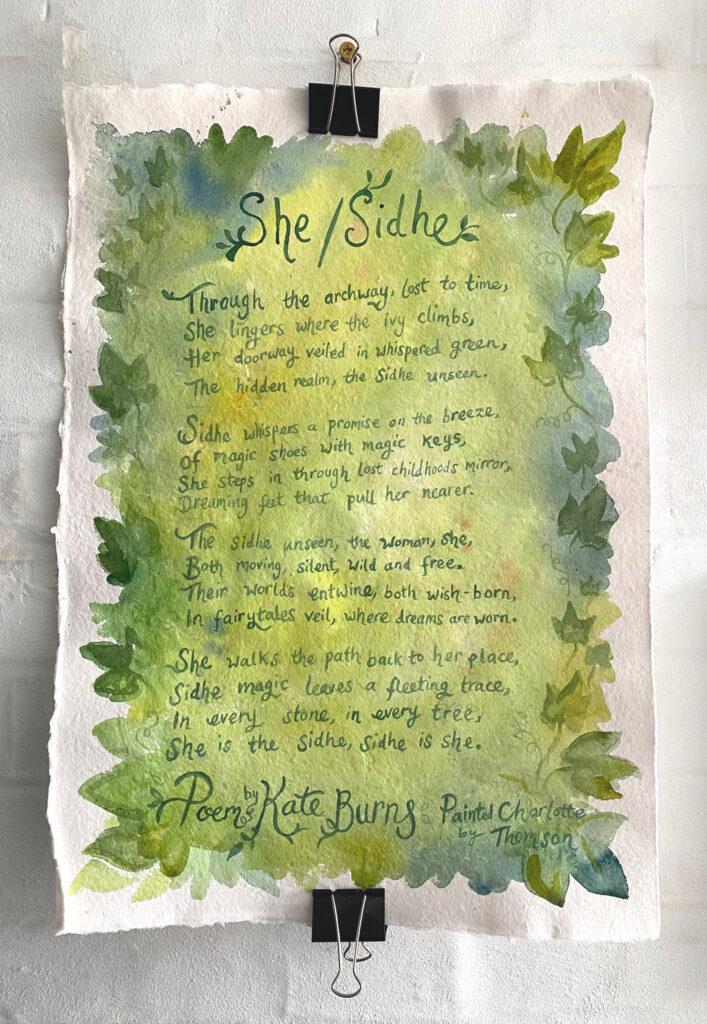 She / Sidhe
Through the archway, lost to time,
She lingers where the ivy climbs,
Her doorway veiled in whispered green,
The hidden realm, the Sidhe unseen.
Sidhe whispers a promise on the breeze,
Of magic shoes with magic keys,
She steps in through lost childhoods mirror,
Dreaming feet that pull her nearer.
The sidhe unseen, the woman, she,
Both moving, silent, wild and free.
Their worlds entwine, both wish-born,
In fairytales veil, where dreams are worn.
She walks the path back to her place,
Sidhe magic leaves a fleeting trace,
In every stone, in every tree,
She is the Sidhe, Sidhe is she.
Poem by Kate Burns
Painted by Charlotte Thomson